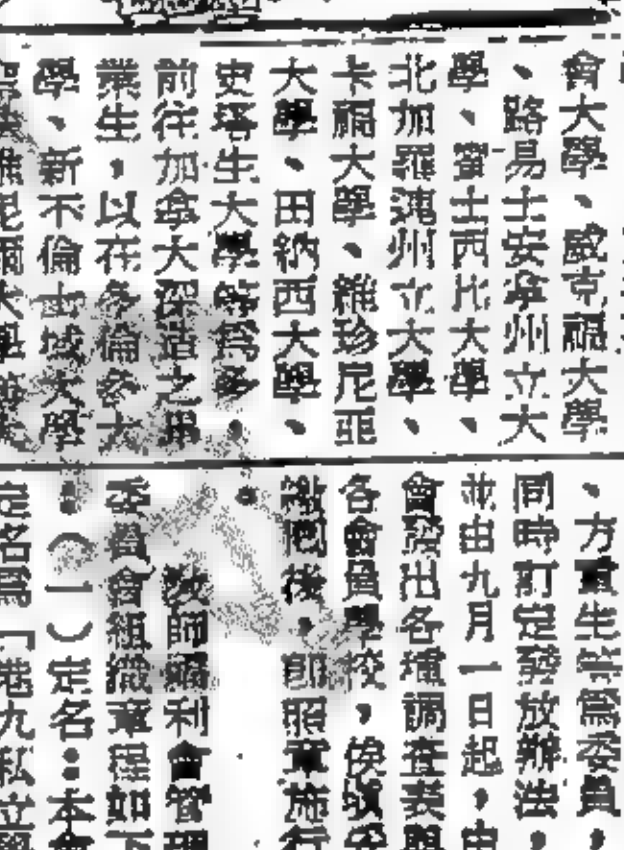 會大學、威克福大學
、路易士安拿州立大
學、賓士西比大學、
北加羅連州立大學、
卡福大學、維珍尼亞
大學、田納西大學、
史塔生大學等爲多。
前往加拿大深造之畢
業生，以在多倫多大
學、新不倫士域大學
、方重生等爲委員，
同時訂定發放辦法，
並由九月一日起，由
會發出各種調查表與
各會員學校，俟填妥
繳回後，即照章施行
。
教師福利會管理
委員會組織章程如下
：（一）定名：本會
定名爲「港九私立學